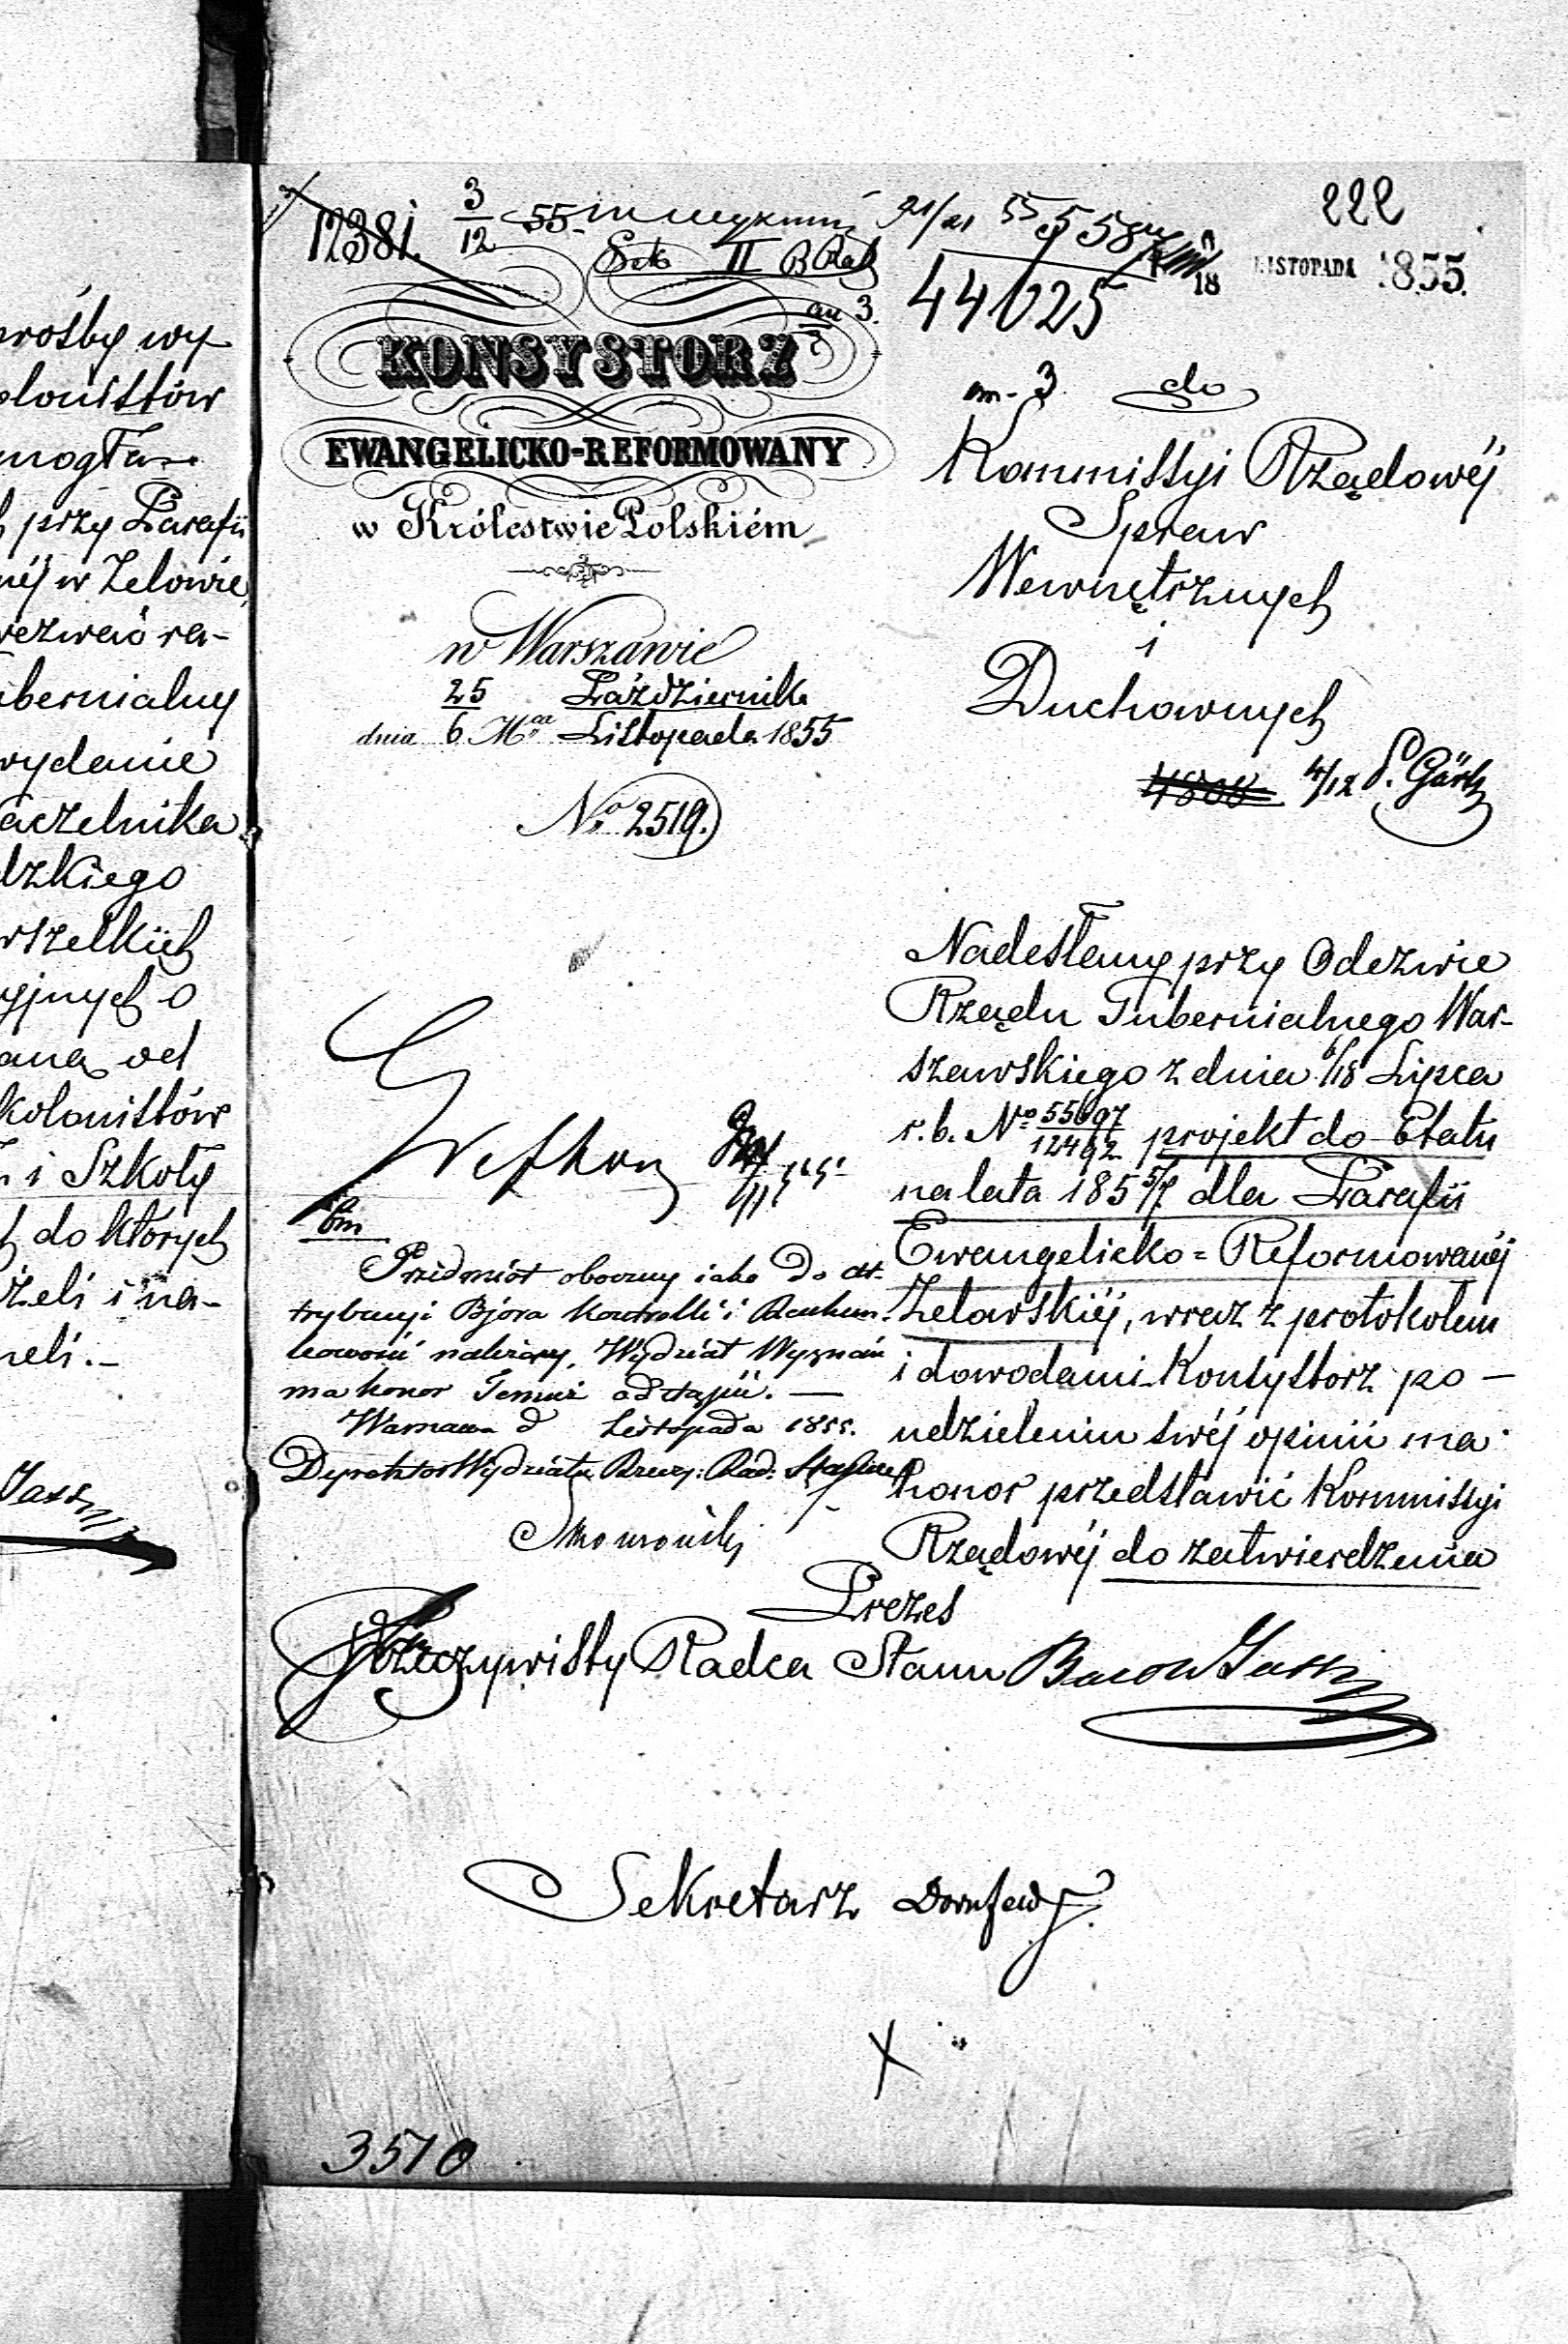 prośby wy-
olonistów
mogła
przy Parafii
nej w Zelowie,
wezwać ra-
ubernialny
wydanie
aczelnika
dzkiego
wszelkich
yjnych o
ana, od
kolonistów
i Szkoły
do których
żeli i na-
neli.-
222
12381.
3/12 55
Sek II B Rak
44625
18
LISTOPADA 1855.
KONSYSTORZ
EWANGELICKO-REFORMOWANY
w Królestwie Polskiém
w Warszawie
25 Października
dnia 6 Mca Listopada 1855
No 2519.
do
Kommissyi Rządowéj
Spraw
Wewnętrznych
i
Duchownych
4/12
Nadesłany przy Odezwie
Rządu Gubernialnego War-
szawskiego z dnia 6/18 Lipca
r. b. No 55697/12492 projekt do Etatu
na lata 1855/7 dla Parafii
Ewangelicko=Reformowanéj
Zelowskiéj, wraz z protokołem
i dowodami Konsystorz po-
udzieleniu swéj opinii ma
honor przedstawić Kommissyi
Rządowéj do zatwierdzenia
Przedmiot oboczny jako do at-
trybucyi Bióra Kontrolli i Rachun-
kowości należący, Wydział Wyznań
ma honor Temuż odstąpić. —
Warszawa d Listopada 1855.
Dyrektor Wydziału, Rzecz: Rad: Stanu
Prezes
Rzeczywisty Radca Stanu
Sekretarz
X
3510